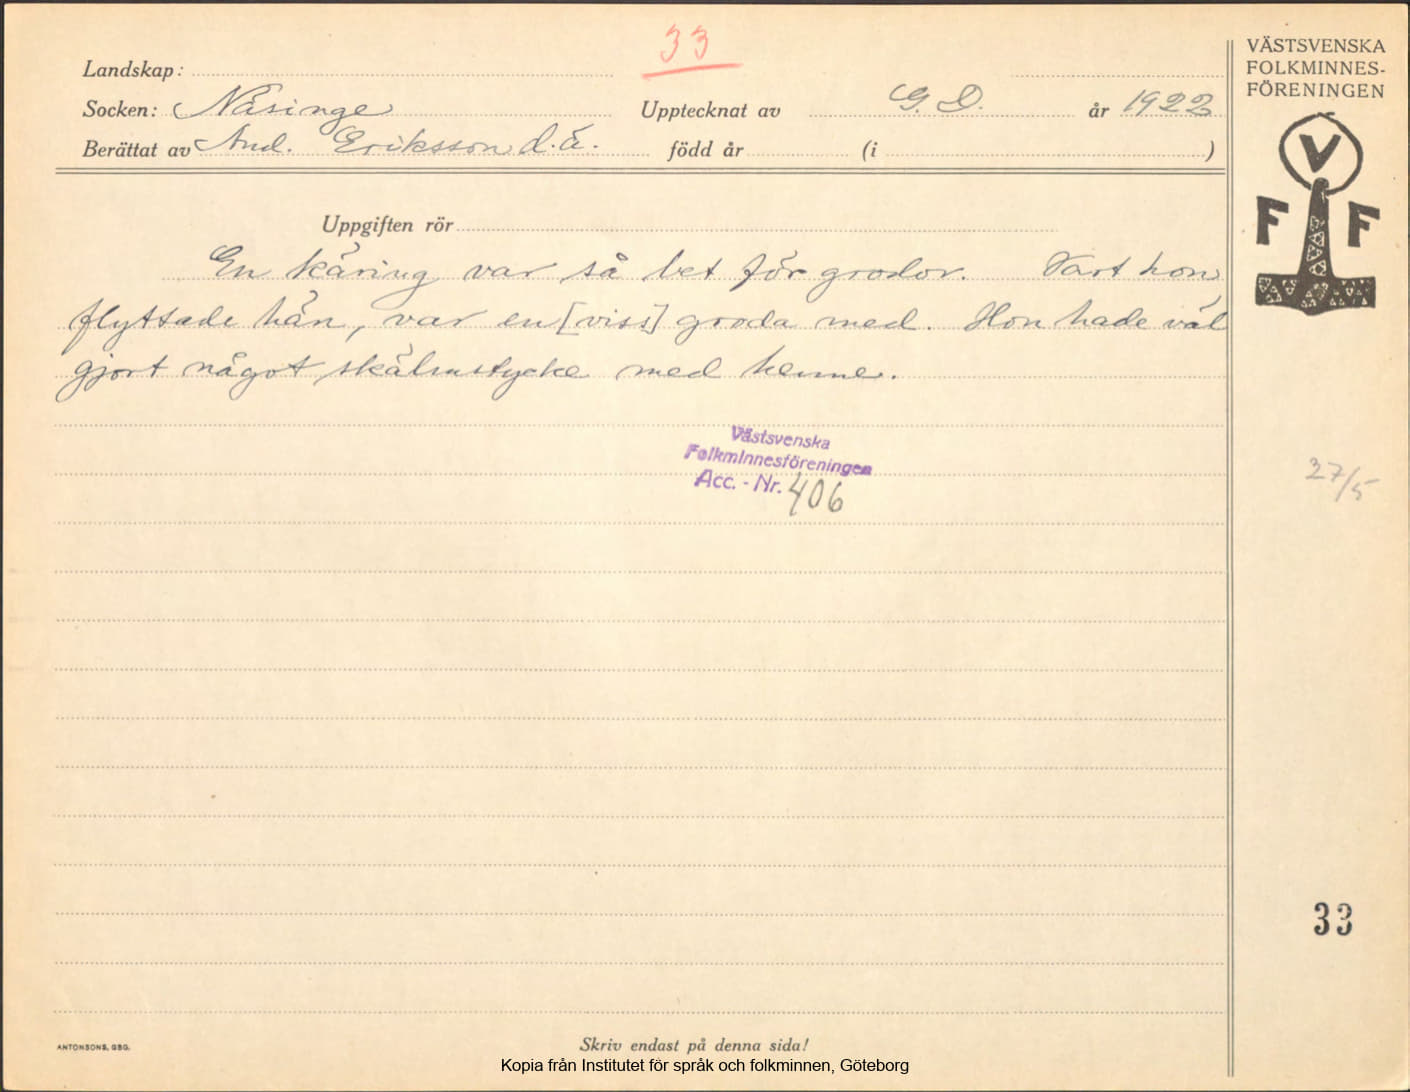 33
Landskap:
Socken: Näsinge Upptecknat av G. D. år 1922
Berättat av And. Eriksson d.ä. född år (i )
VÄSTSVENSKA
FOLKMINNES-
FÖRENINGEN
V
F F
Uppgiften rör
En käring var så let för grodor. Vart hon
flyttade hän, var en [viss] groda med. Hon hade väl
gjort något skälmstycke med henne.
Västsvenska
Folkminnesföreningen
Acc. - Nr. 406
27/5
33
ANTONSONS, GBG.
Skriv endast på denna sida!
Kopia från Institutet för språk och folkminnen, Göteborg